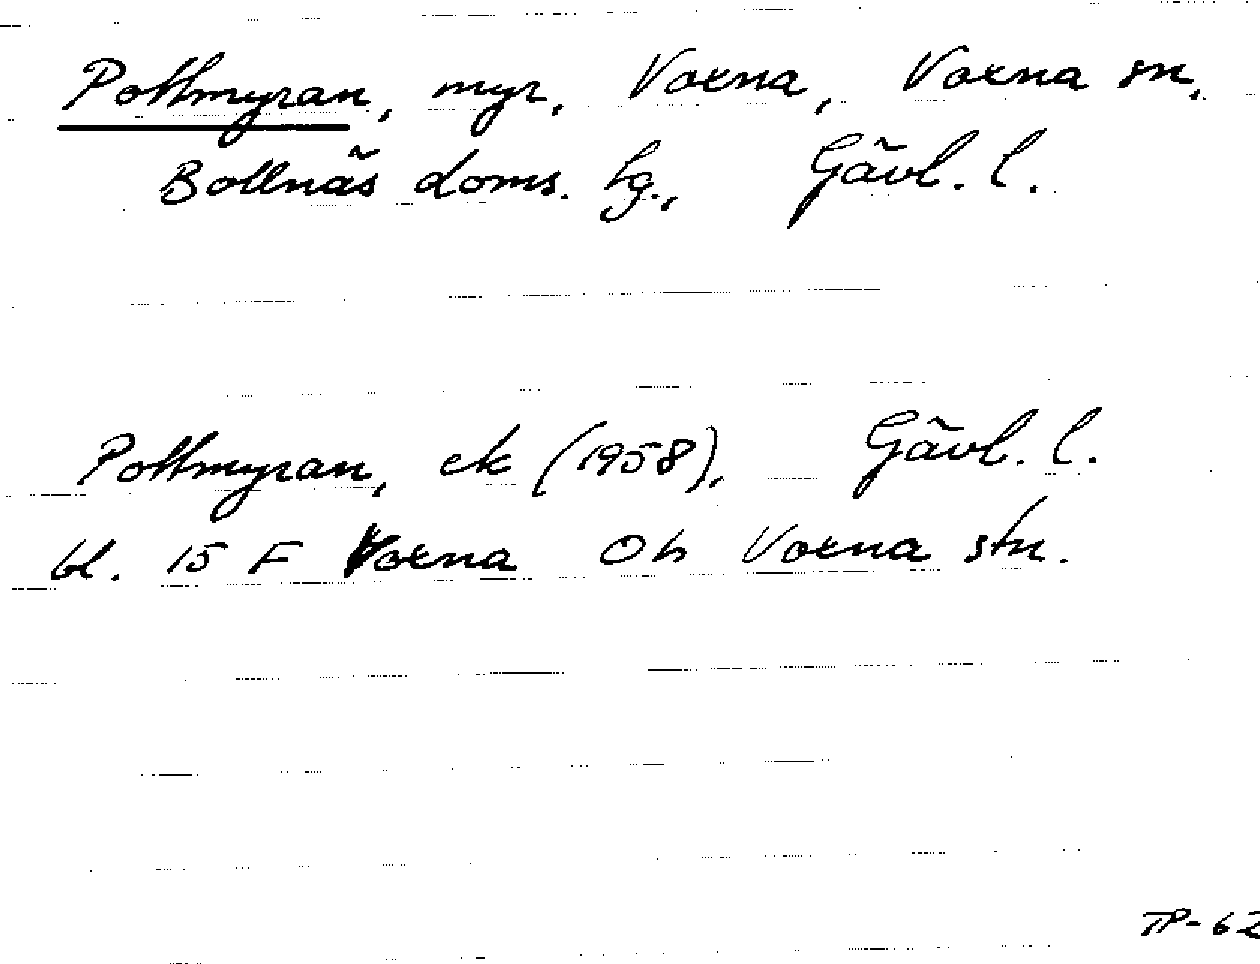 Pottmyran, myr, Voxna, Voxna sn,
Bollnäs doms. hg., Gävl. l.
Pottmyran, ek (1958), Gävl. l.
bl. 15 F Voxna Oh Voxna stn.
TP-62